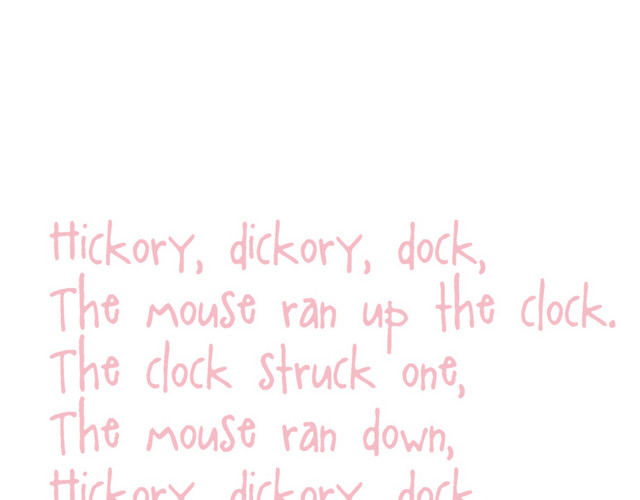 Hickory, dickory, dock,
The mouse ran up the clock.
The clock struck one,
The mouse ran down,
Hickory, dickory, dock